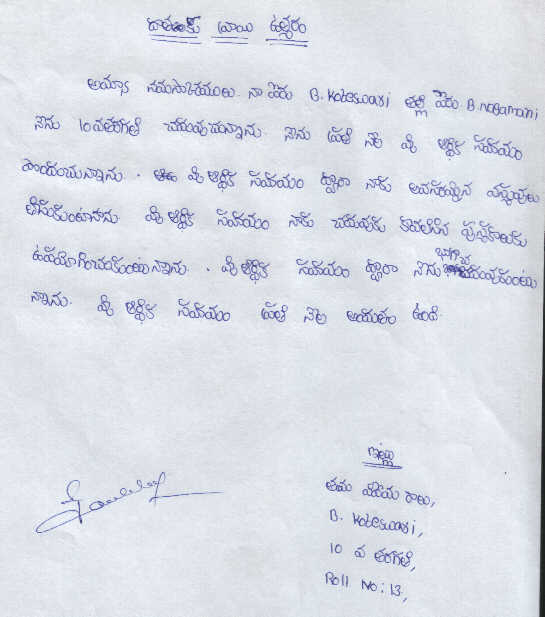 దాతలకు వ్రాయి ఉత్తరం
అయ్యా నమస్కారములు. నా పేరు B. Koteswari తల్లి పేరు B. nagamani
నేను 10వతరగతి చదువుచున్నాను. నేను ప్రతి నెల మీ ఆర్థిక సహాయం
పొందుచున్నాను. మీ ఆర్థిక సహాయం ద్వారా నాకు అవసరమైన వస్తువులు
తీసుకుంటూనాను. మీ ఆర్థిక సహాయం నాకు చదువుకు కావలసిన పుస్తకాలకు
ఉపయోగించుకుంటున్నాను. మీ ఆర్థిక సహాయం ద్వారా నేను బాగా చదువుకుంటు
న్నాను. మీ ఆర్థిక సహాయం ప్రతి నెల అందుతు ఉంది.
ఇట్లు
తమ విధేయ రాలు,
B. Koteswari,
10 వ తరగతి,
Roll No: 13,